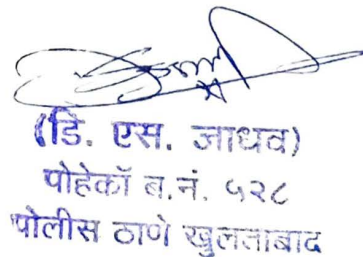 (डि. एस. जाधव)
पोहेकॉ ब.नं. ५२८
पोलीस ठाणे खुलताबाद